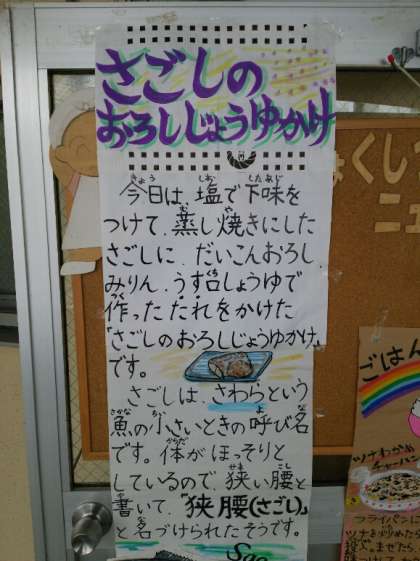 さごしの
おろしじょうゆかけ
今日は、塩で下味を
つけて、蒸し焼きにした
さごしに、だいこんおろし
みりん、うす口しょうゆで
作ったたれをかけた
「さごしのおろしじょうゆかけ」
です。
さごしは、さわらという
魚の小さいときの呼び名
です。体がほっそりと
しているので、狭い腰と
書いて、"狭腰(さごし)"
と名づけられたそうです。
くしつ
ニュ
ごはん
ツナわかめ
チャーハン
フライパン
ツナを炒めたら